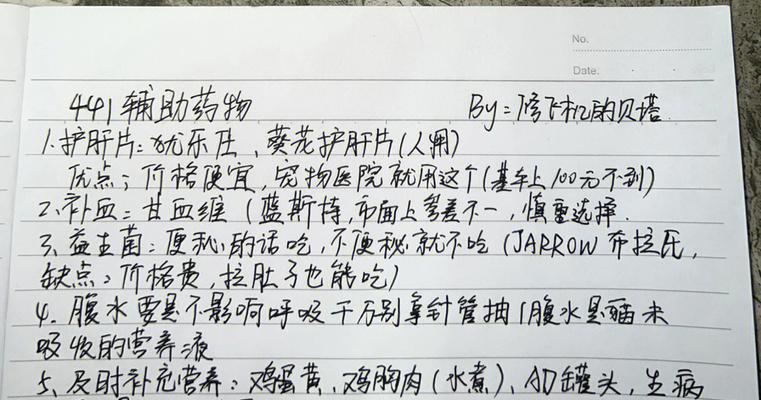 No.
Date.
441辅助药物 By:修飞机的贝塔
1.护肝片:优乐仕、葵花护肝片(人用)
优点:价格便宜,宠物医院就用这个(基本上100元不到)
2.补血:甘血维(蓝斯特,市面上参差不一,慎重选择.
3.益生菌:便秘的话吃,不便秘就不吃(JARROW布拉氏,
缺点:价格贵,拉肚子也能吃)
4.腹水要是不影响呼吸千万别拿针管抽!腹水是猫未
吸收的营养液
5、及时补充营养:鸡蛋黄,鸡胸肉(水煮)、AD罐头,生病